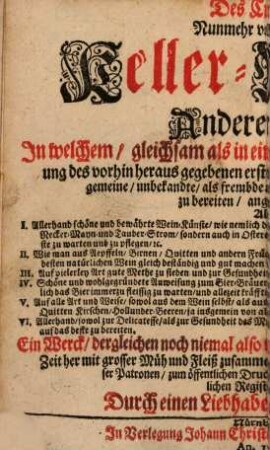 Des Cu
Nunmehr vo
Keller-
Anderer
In welchem / gleichsam als in ein
ung des vorhin heraus gegebenen erst
gemeine / unbekandte / als frembde
zu bereiten / ang
I. Allerhand schöne und bewährte Wein-Künste/ wie nemlich d
Necker-Mayn-und Tauber-Strom/ sondern auch in Osterr
ste zu warten und zu pflegen/ ꝛc.
II. Wie man aus Aepffeln/ Birnen/ Quitten und andern Früch
besten natürlichen Wein gleich beständig und gut machen
III. Auf vielerley Art gute Methe zu sieden und zur Gesundheit
IV. Schöne und wohlgegründete Anweisung zum Bier-Bräuen
lich das Bier immerzu fleissig zu warten/ und allezeit kräfft
V. Auf alle Art und Weise/ sowol aus dem Wein selbst/ als aus
Quitten Kirschen-Hollunder-Beeren/ ja insgemein von al
VI. Allerhand/ sowol zur Delicatesse/ als zur Gesundheit das M
auf das beste zu bereiten.
Ein Werck/ dergleichen noch niemal also
Zeit her mit grosser Müh und Fleiß zusamme
ser Patronen/ zum öffentlichen Druc
lichen Regist
Durch einen Liebhabe
Nürnb
In Verlegung Johann Christ